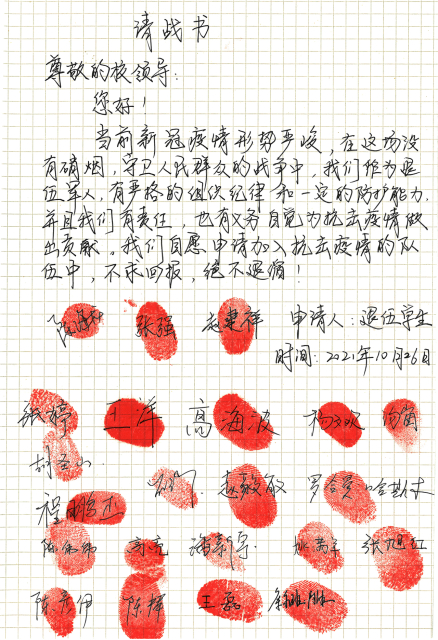 请战书
尊敬的校领导:
您好!
当前新冠疫情形势严峻,在这场没
有硝烟,守卫人民群众的战争中,我们作为退
伍军人,有严格的组织纪律和一定的防护能力,
并且我们有责任也有义务自觉为抗击疫情做
出贡献。我们自愿申请加入抗击疫情的队
伍中,不求回报,绝不退缩!
张强 赵建祥 申请人:退伍学生
时间:2021年10月26日
张婷 王洋 高海波
赵毅敏
程鹏杰
高亮 张旭红
陈彦伊 陈辉 王磊